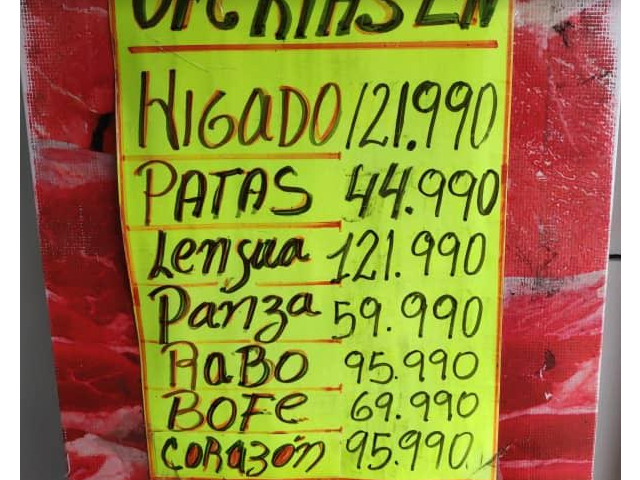 OFERTAS EN
HIGADO 121.990
PATAS 44.990
Lengua 121.990
Panza 59.990
RaBO 95.990
BOFe 69.990
CORAZÓN 95.990